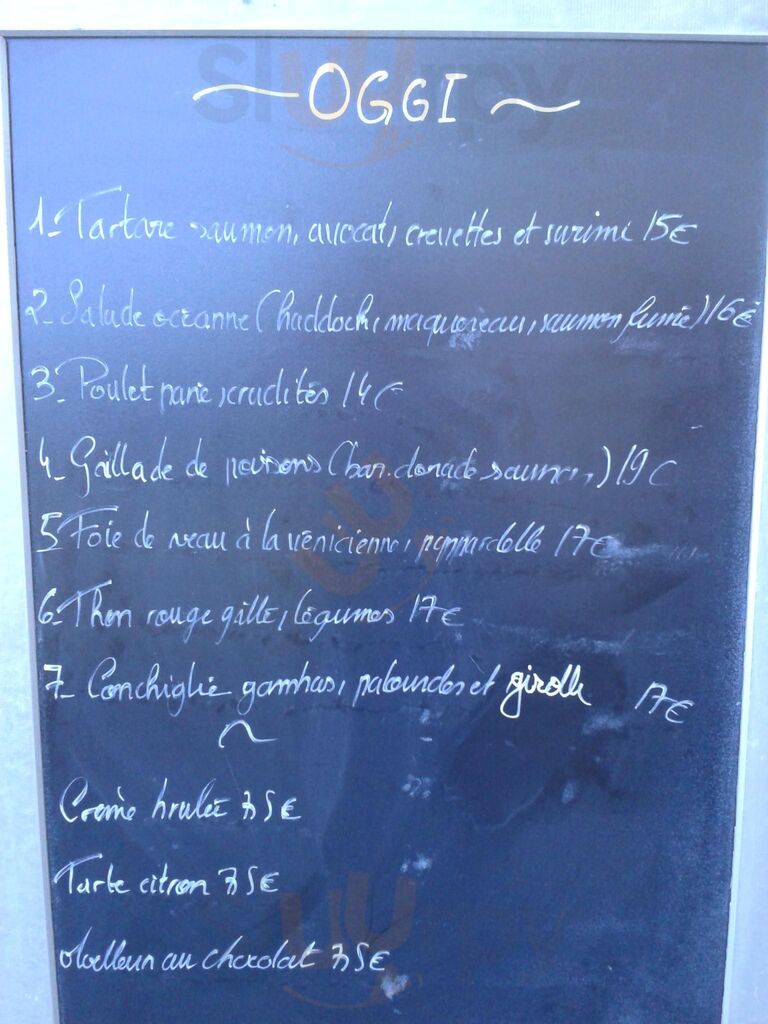 ~ OGGI ~
1- Tartare saumon, avocat, crevettes et surimi 15€
2- Salade océanne (haddock, maquereau, saumon fumé) 16€
3- Poulet pané, crudités 14€
4- Grillade de poisons (bar. dorade saumon,) 19€
5 Foie de veau à la vénicienne, pappardelle 17€
6- Thon rouge grillé, légumes 17€
7- Conchiglie gambas, palourdes et girolle 17€
~
Crème brulée 7,5€
Tarte citron 7,5€
Moelleux au chocolat 7,5€